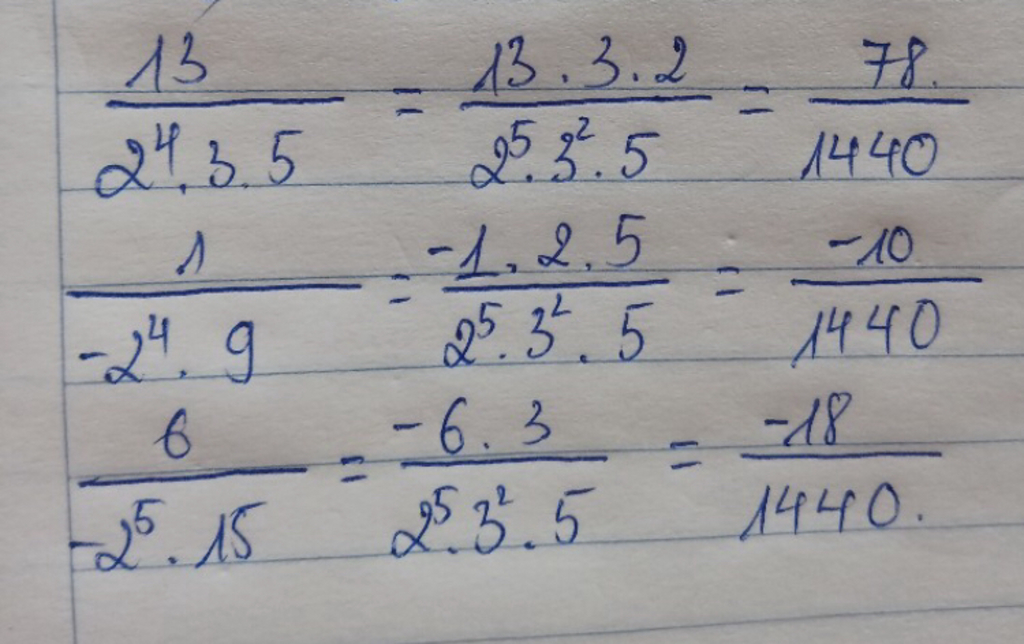 13 / 2⁴.3.5 = 13.3.2 / 2⁵.3².5 = 78. / 1440
1 / -2⁴.9 = -1.2.5 / 2⁵.3².5 = -10 / 1440
6 / -2⁵.15 = -6.3 / 2⁵.3².5 = -18 / 1440.